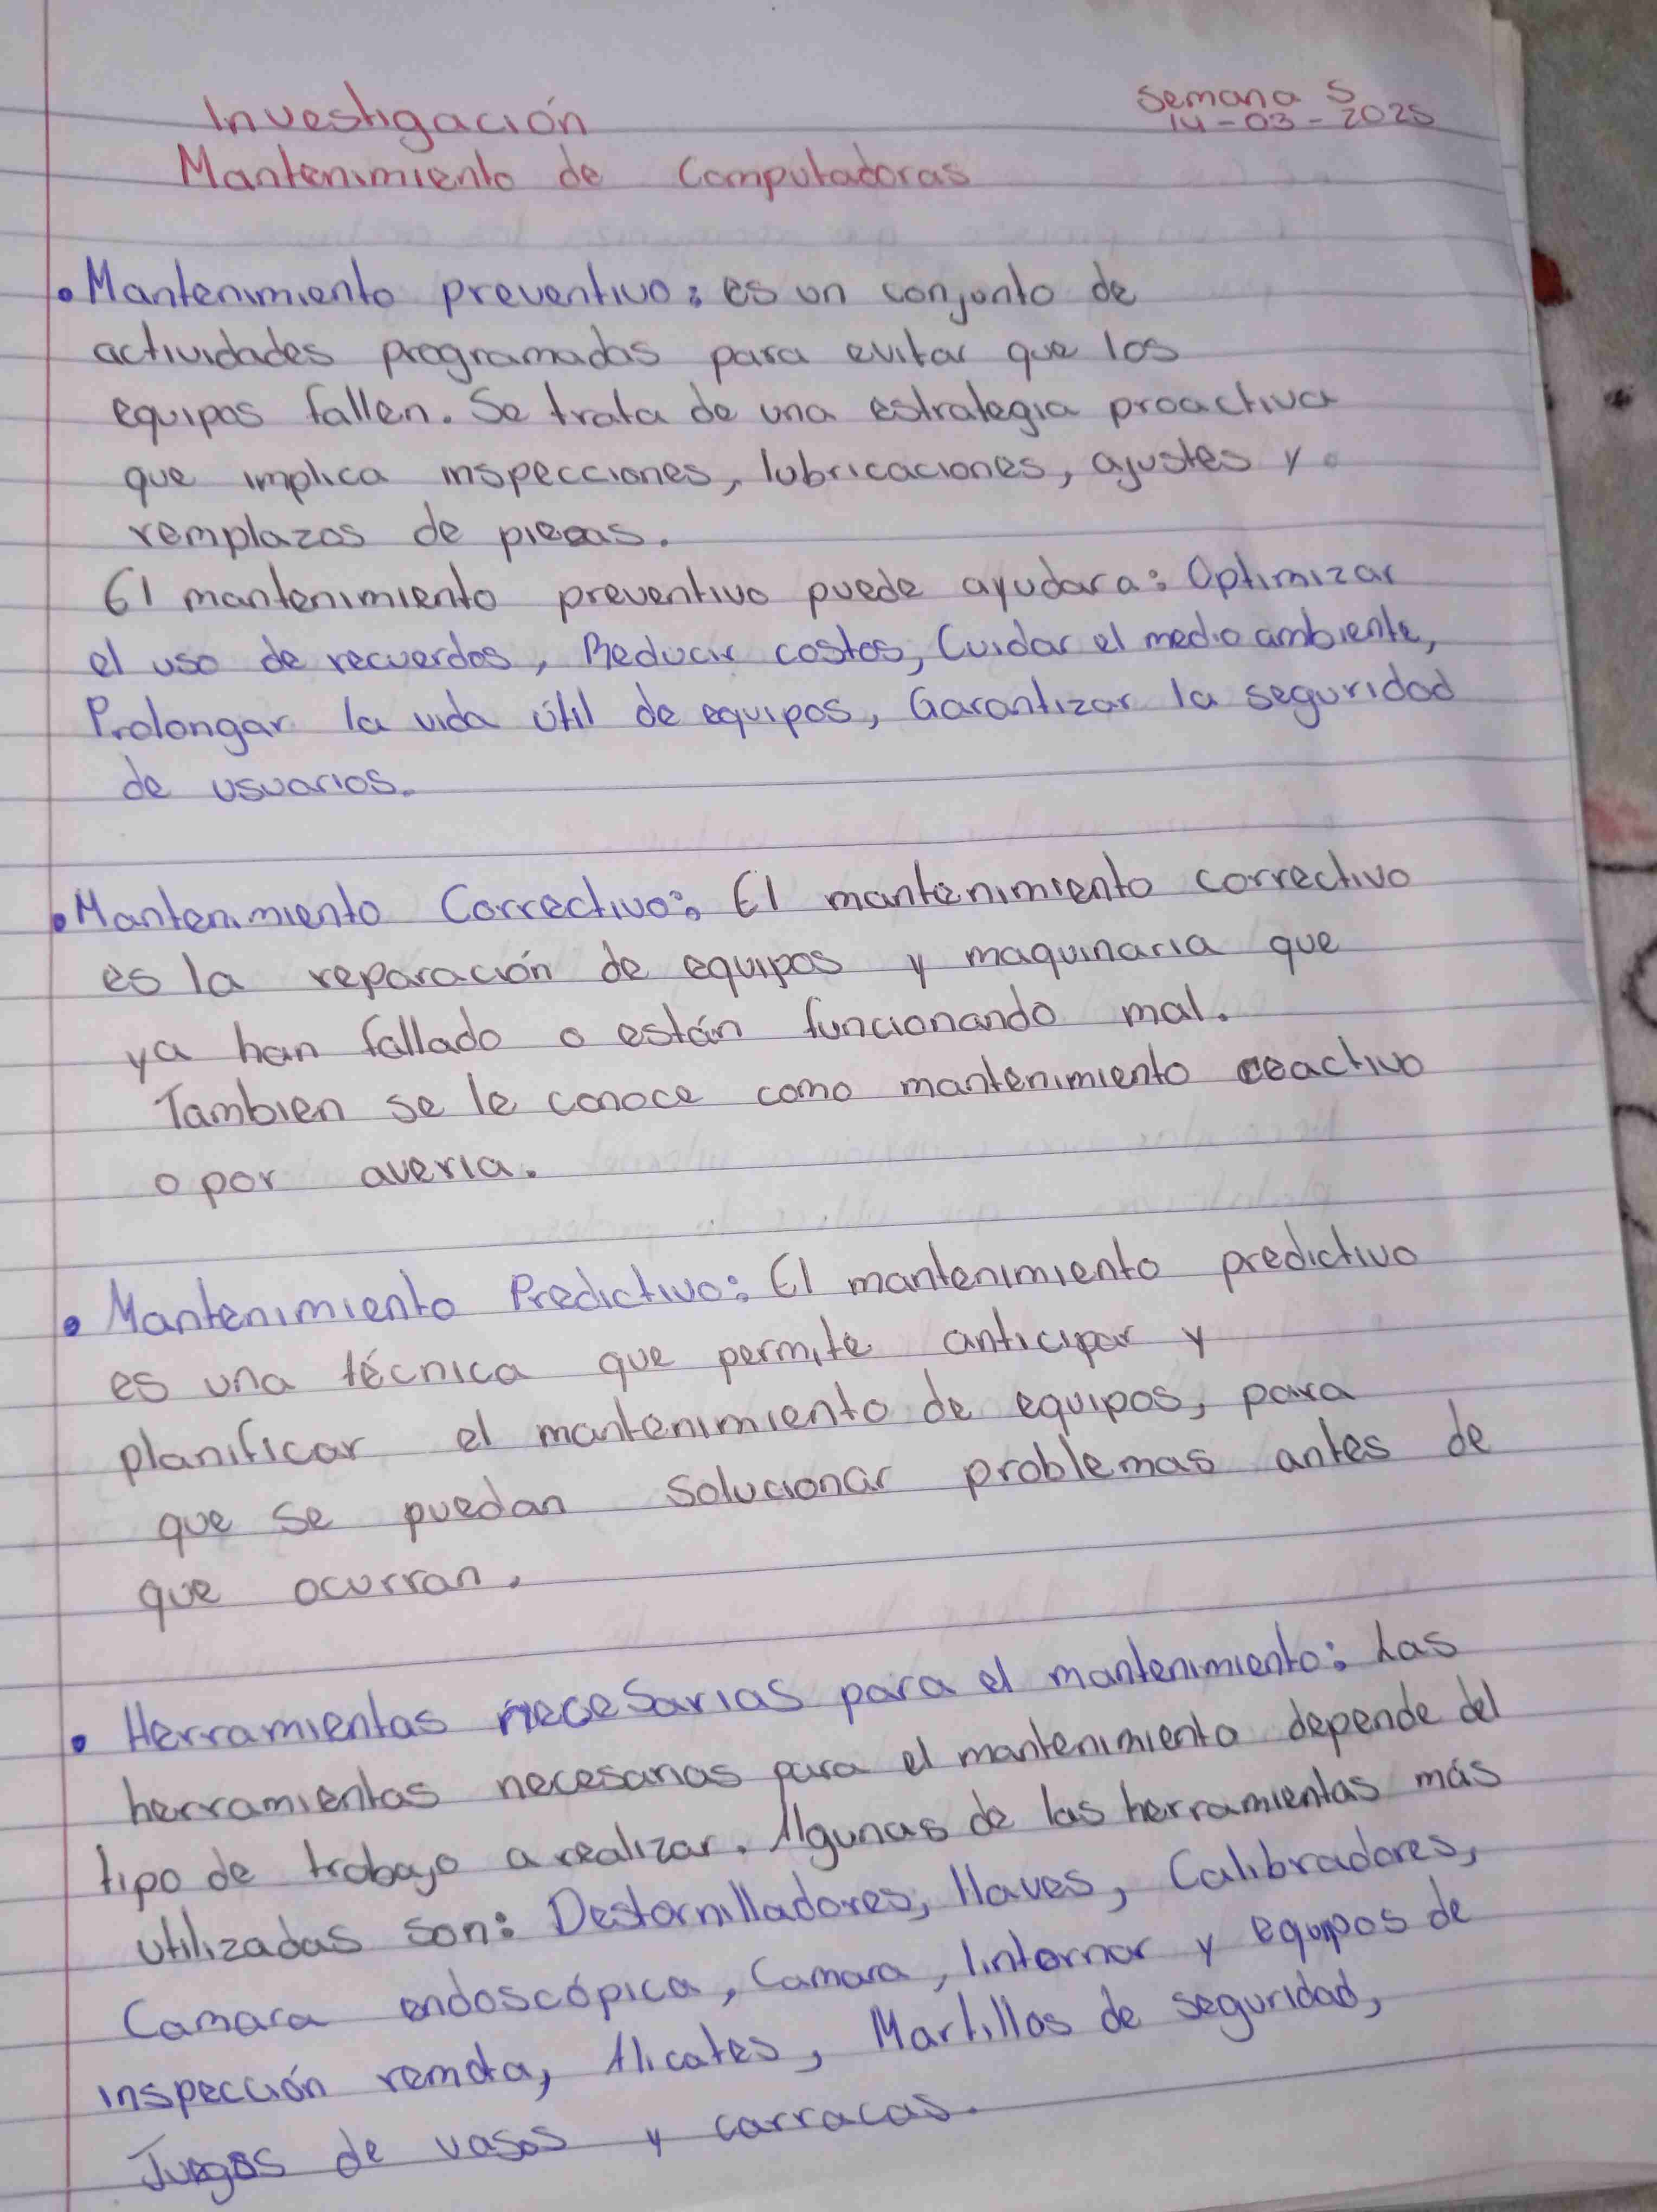 Investigación
Semana 5
14-03-2025
Mantenimiento de Computadoras
• Mantenimiento preventivo: es un conjunto de
actividades programadas para evitar que los
equipos fallen. Se trata de una estrategia proactiva
que implica inspecciones, lubricaciones, ajustes y
remplazos de piezas.
El mantenimiento preventivo puede ayudara: Optimizar
el uso de recuerdos, Reducir costos, Cuidar el medio ambiente,
Prolongar la vida útil de equipos, Garantizar la seguridad
de usuarios.
• Mantenimiento Correctivo: El mantenimiento correctivo
es la reparación de equipos y maquinaria que
ya han fallado o están funcionando mal.
Tambien se le conoce como mantenimiento reactivo
o por averia.
• Mantenimiento Predictivo: El mantenimiento predictivo
es una técnica que permite anticipar y
planificar el mantenimiento de equipos, para
que se puedan solucionar problemas antes de
que ocurran.
• Herramientas necesarias para el mantenimiento: Las
herramientas necesarias para el mantenimiento depende del
tipo de trabajo a realizar. Algunas de las herramientas más
utilizadas son: Destornilladores, llaves, Calibradores,
Camara endoscópica, Camara, linternar y equipos de
inspección remota, Alicates, Martillos de seguridad,
Juegos de vasos y carracas.